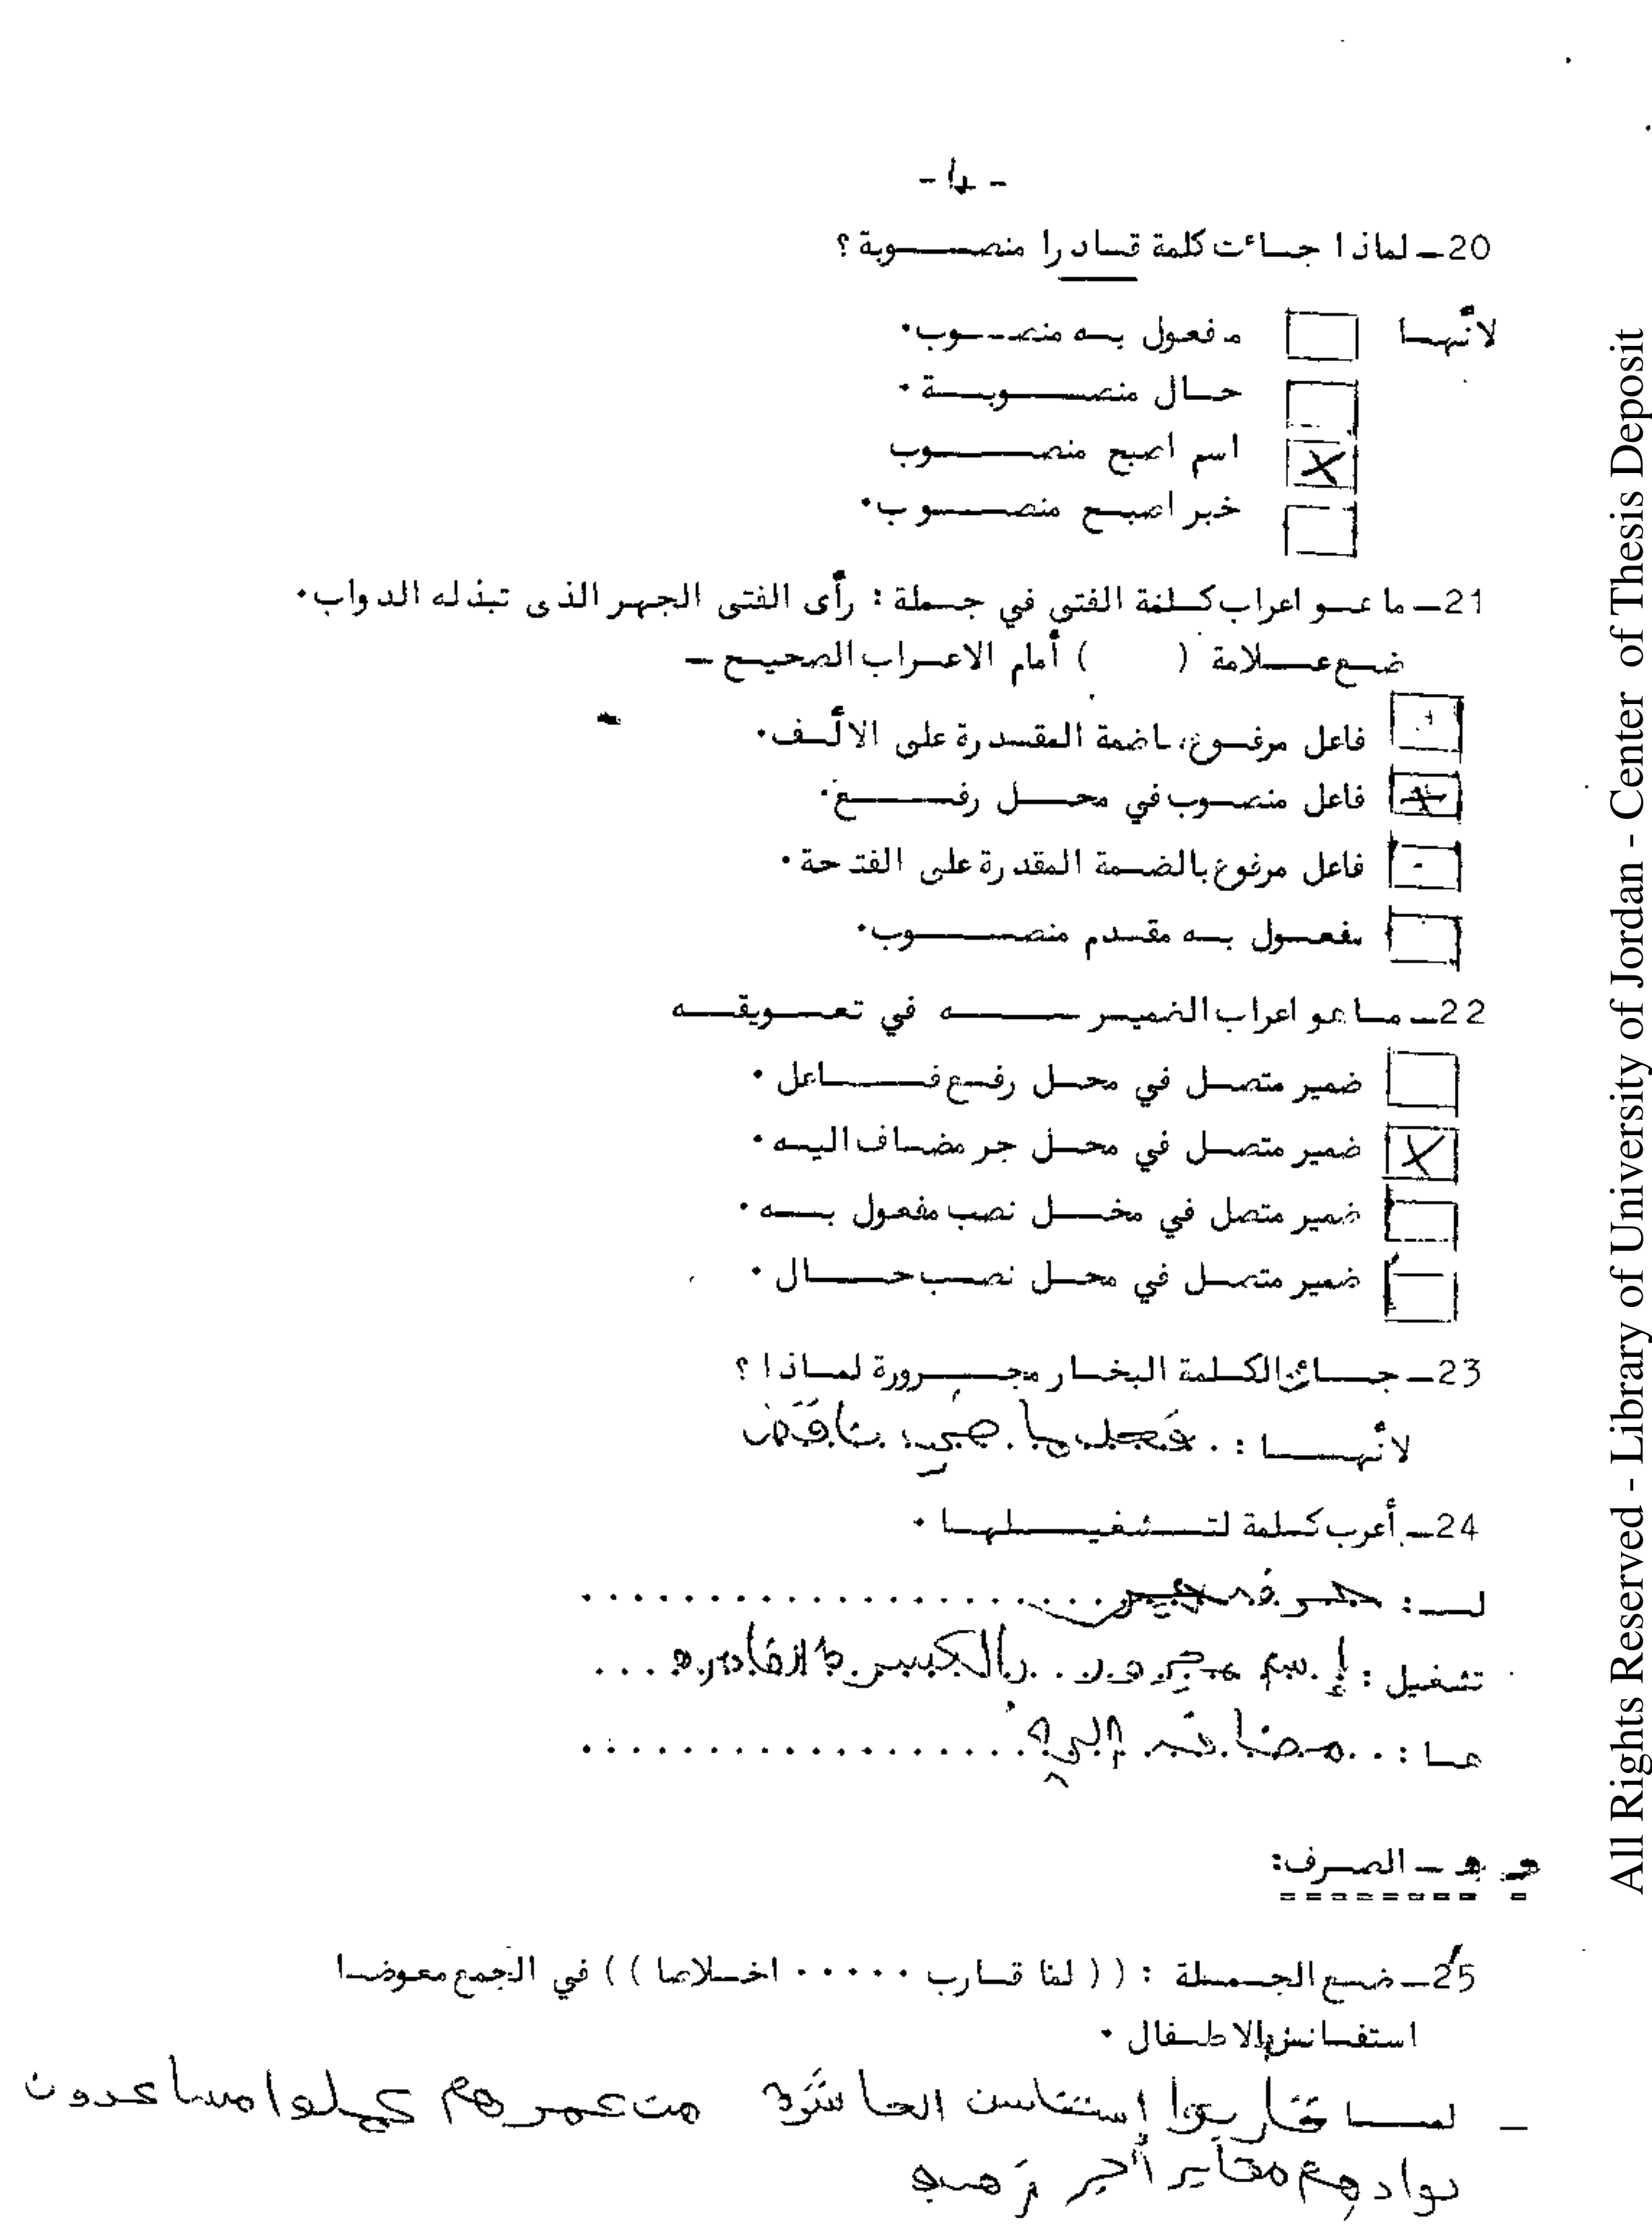 - 4 -
20- لماذا جاءت كلمة قادرا منصوبة؟
لأنها مفعول به منصوب.
حال منصوبة.
X اسم اصبح منصوب
خبر اصبح منصوب.
21- ما هو اعراب كلمة الفتى في جملة : رأى الفتى الجهر الذى تبذله الدواب.
ضع علامة ( ) أمام الاعراب الصحيح -
فاعل مرفوع باضمة المقدرة على الألف.
X فاعل منصوب في محل رفع.
فاعل مرفوع بالضمة المقدرة على الفتحة.
مفعول به مقدم منصوب.
22- ما هو اعراب الضمير ـه في تعويقه
ضمير متصل في محل رفع فاعل.
X ضمير متصل في محل جر مضاف اليه.
ضمير متصل في مخل نصب مفعول به.
ضمير متصل في محل نصب حال.
23- جائت الكلمة البخار مجرورة لماذا ؟
لأنها : فعل ماضي ناقص
24- أعرب كلمة لتشغيلها.
لـ : حرف جر
تشغيل : إسم مجرور بالكسرة الظاهرة
ها : مضاف إليه
هـ - الصرف:
25- ضع الجملة : (( لما قارب ..... اخلاصا )) في الجمع معوضا
استفانس بالاطفال.
- لما قاربوا إستفانس العاشرة من عمرهم عملوا مساعدون
لوادهم مقابر أجر زهيد